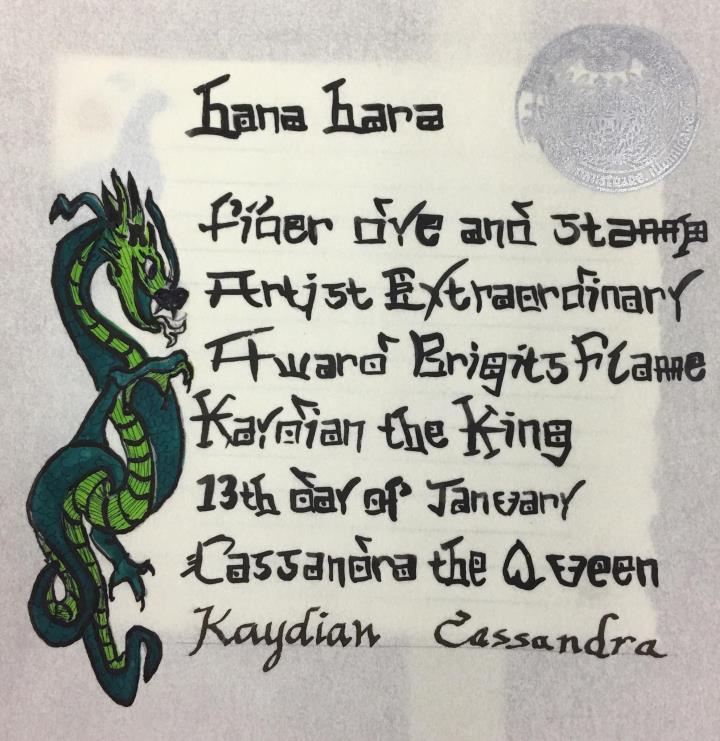 hana hara
fiber dye and stamp
Artist Extraordinary
Award Brigits Flame
Kaydian the King
13th day of January
Cassandra the Queen
Kaydian Cassandra